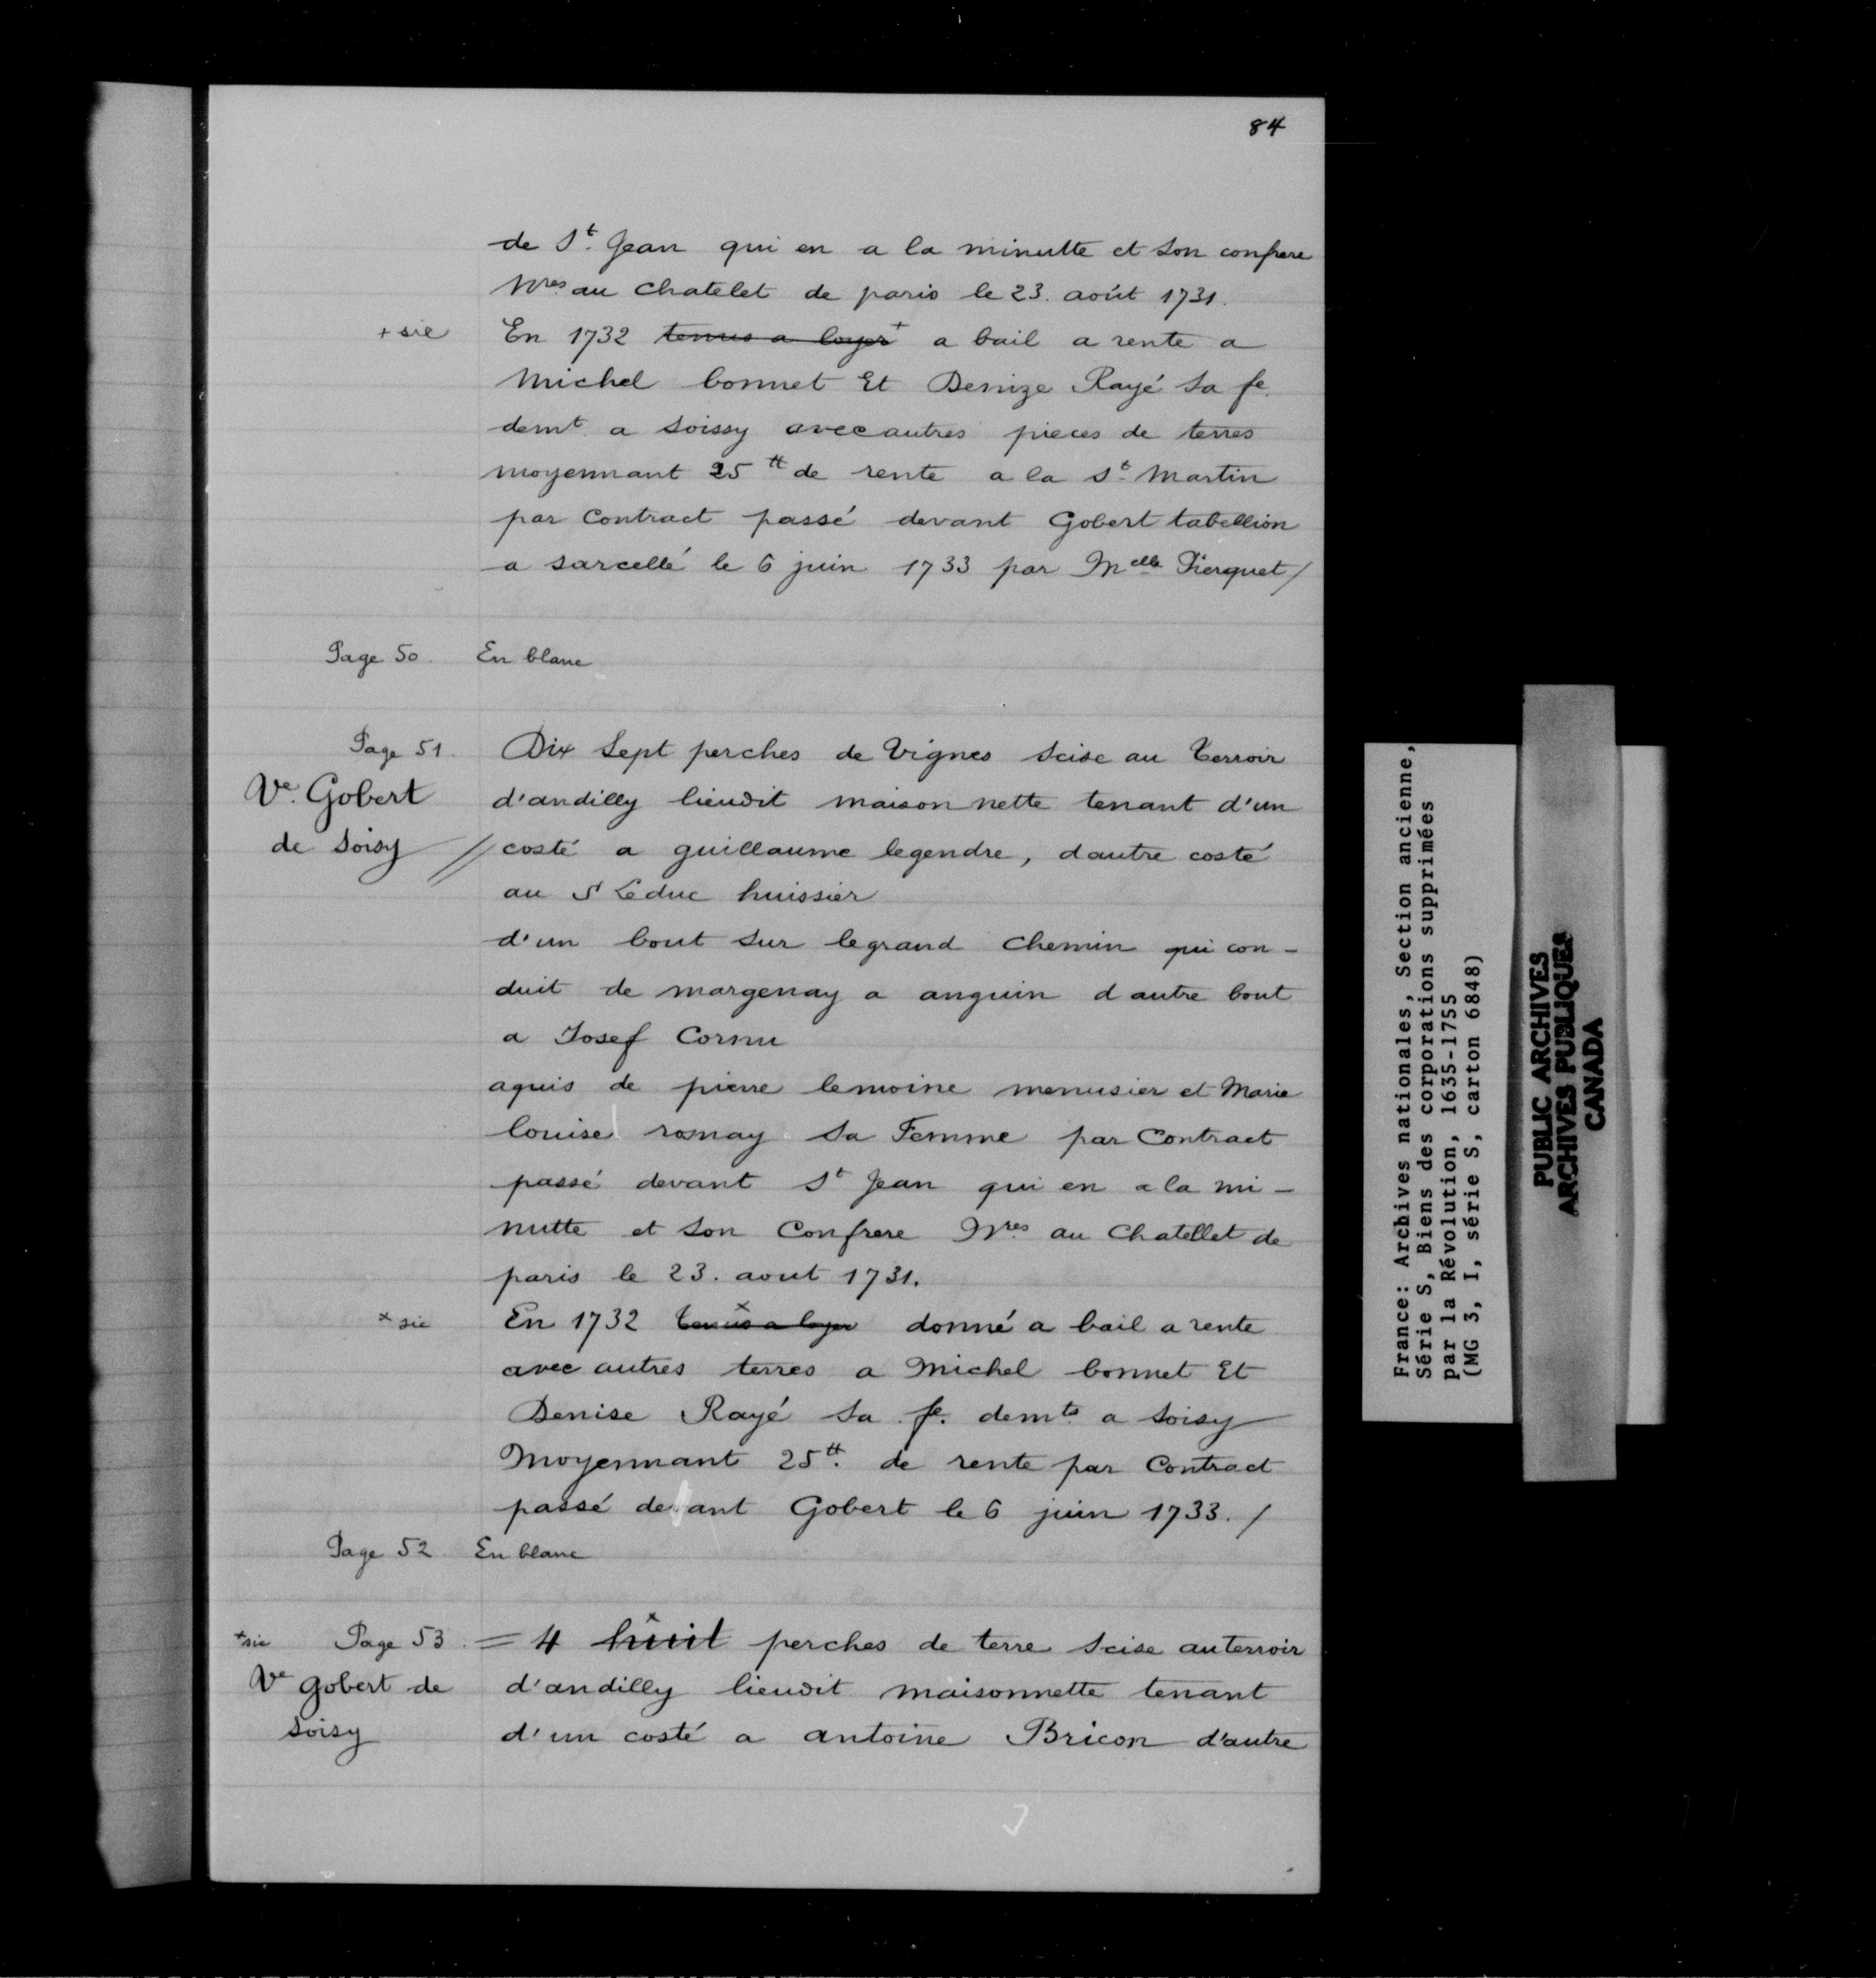 84
de St. Jean qui en a la minutte et son confrere
Nres au Chatelet de paris le 23. août 1731.
+ sic
En 1732 tenus a loyer + a bail a rente a
Michel bonnet Et Denize Rayé sa fe.
demt. a soissy avec autres pieces de terres
moyennant 25 tt de rente a la St. Martin
par Contract passé devant Gobert tabellion
a sarcelle le 6 juin 1733 par Melle Pierquet /
Page 50. En blanc
Page 51. Dix sept perches de Vignes scise au terroir
Ve. Gobert d'andilly lieudit maison nette tenant d'un
de soisy // costé a guillaume legendre, dautre costé
au Sr Leduc huissier
d'un bout sur legrand chemin qui con-
duit de margenay a anguin d autre bout
a Josef Cornu
aquis de pierre lemoine menusier et Marie
louise romay sa Femme par Contract
passé devant St Jean qui en a la mi-
nutte et son Confrere Nres au Chatellet de
paris le 23. aout 1731.
x sic
En 1732 tenus a loyer x donné a bail a rente
avec autres terres a Michel bonnet Et
Denise Rayé sa fe. demts a soisy
Moyennant 25tt. de rente par Contract
passé devant Gobert le 6 juin 1733. /
Page 52. En blanc
+sic Page 53. = 4 huit x perches de terre scise auterroir
Ve gobert de d'andilly lieudit maisonnette tenant
soisy d'un costé a antoine Bricon d'autre
France: Archives nationales, Section ancienne,
Série S, Biens des corporations supprimées
par la Révolution, 1635-1755
(MG 3, I, série S, carton 6848)
PUBLIC ARCHIVES
ARCHIVES PUBLIQUES
CANADA